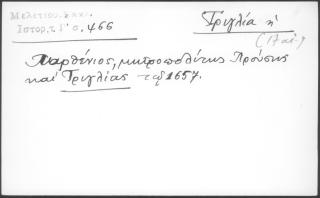 Μελετίου, Ἐκκλ.
Ἱστορ. τ. Γ΄ σ. 466
Τριγλία ἡ
(17 αἰ.)
Παρθένιος, μητροπολίτης Προύσης
καὶ Τριγλίας τῷ 1657.